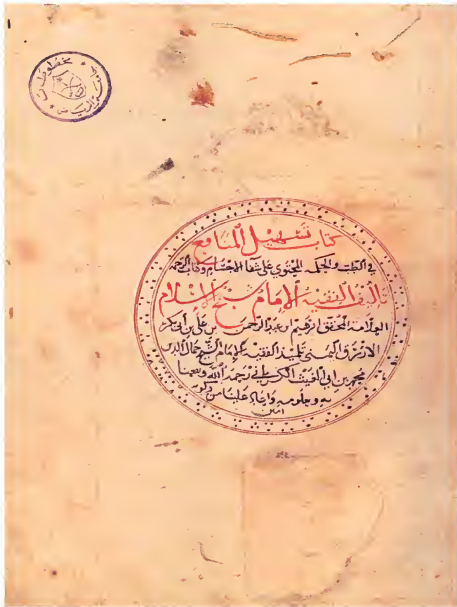 كتاب تسهيل المنافع
في الطب والحكمة المحتوي على شفا الاجسام وكتاب الرحمة
تاليف الفقيه الامام شيخ الاسلام
العلامة المحقق ابرهيم بن عبد الرحمن بن علي بن ابي بكر
الازرق تلميذ الفقيه الامام الشيخ جمال الدين
محمد بن ابي الغيث الكمراني رحمه الله ونفعنا
به وبعلومه واعاد علينا من بركته
امين
مخطوطات